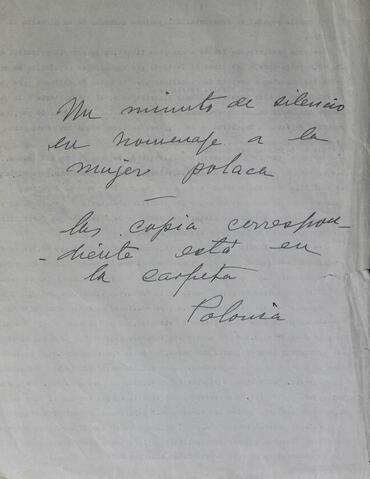 Un minuto de silencio
en homenaje a la
mujer polaca
—
las copia correspon-
-diente está en
la carpeta
Polonia